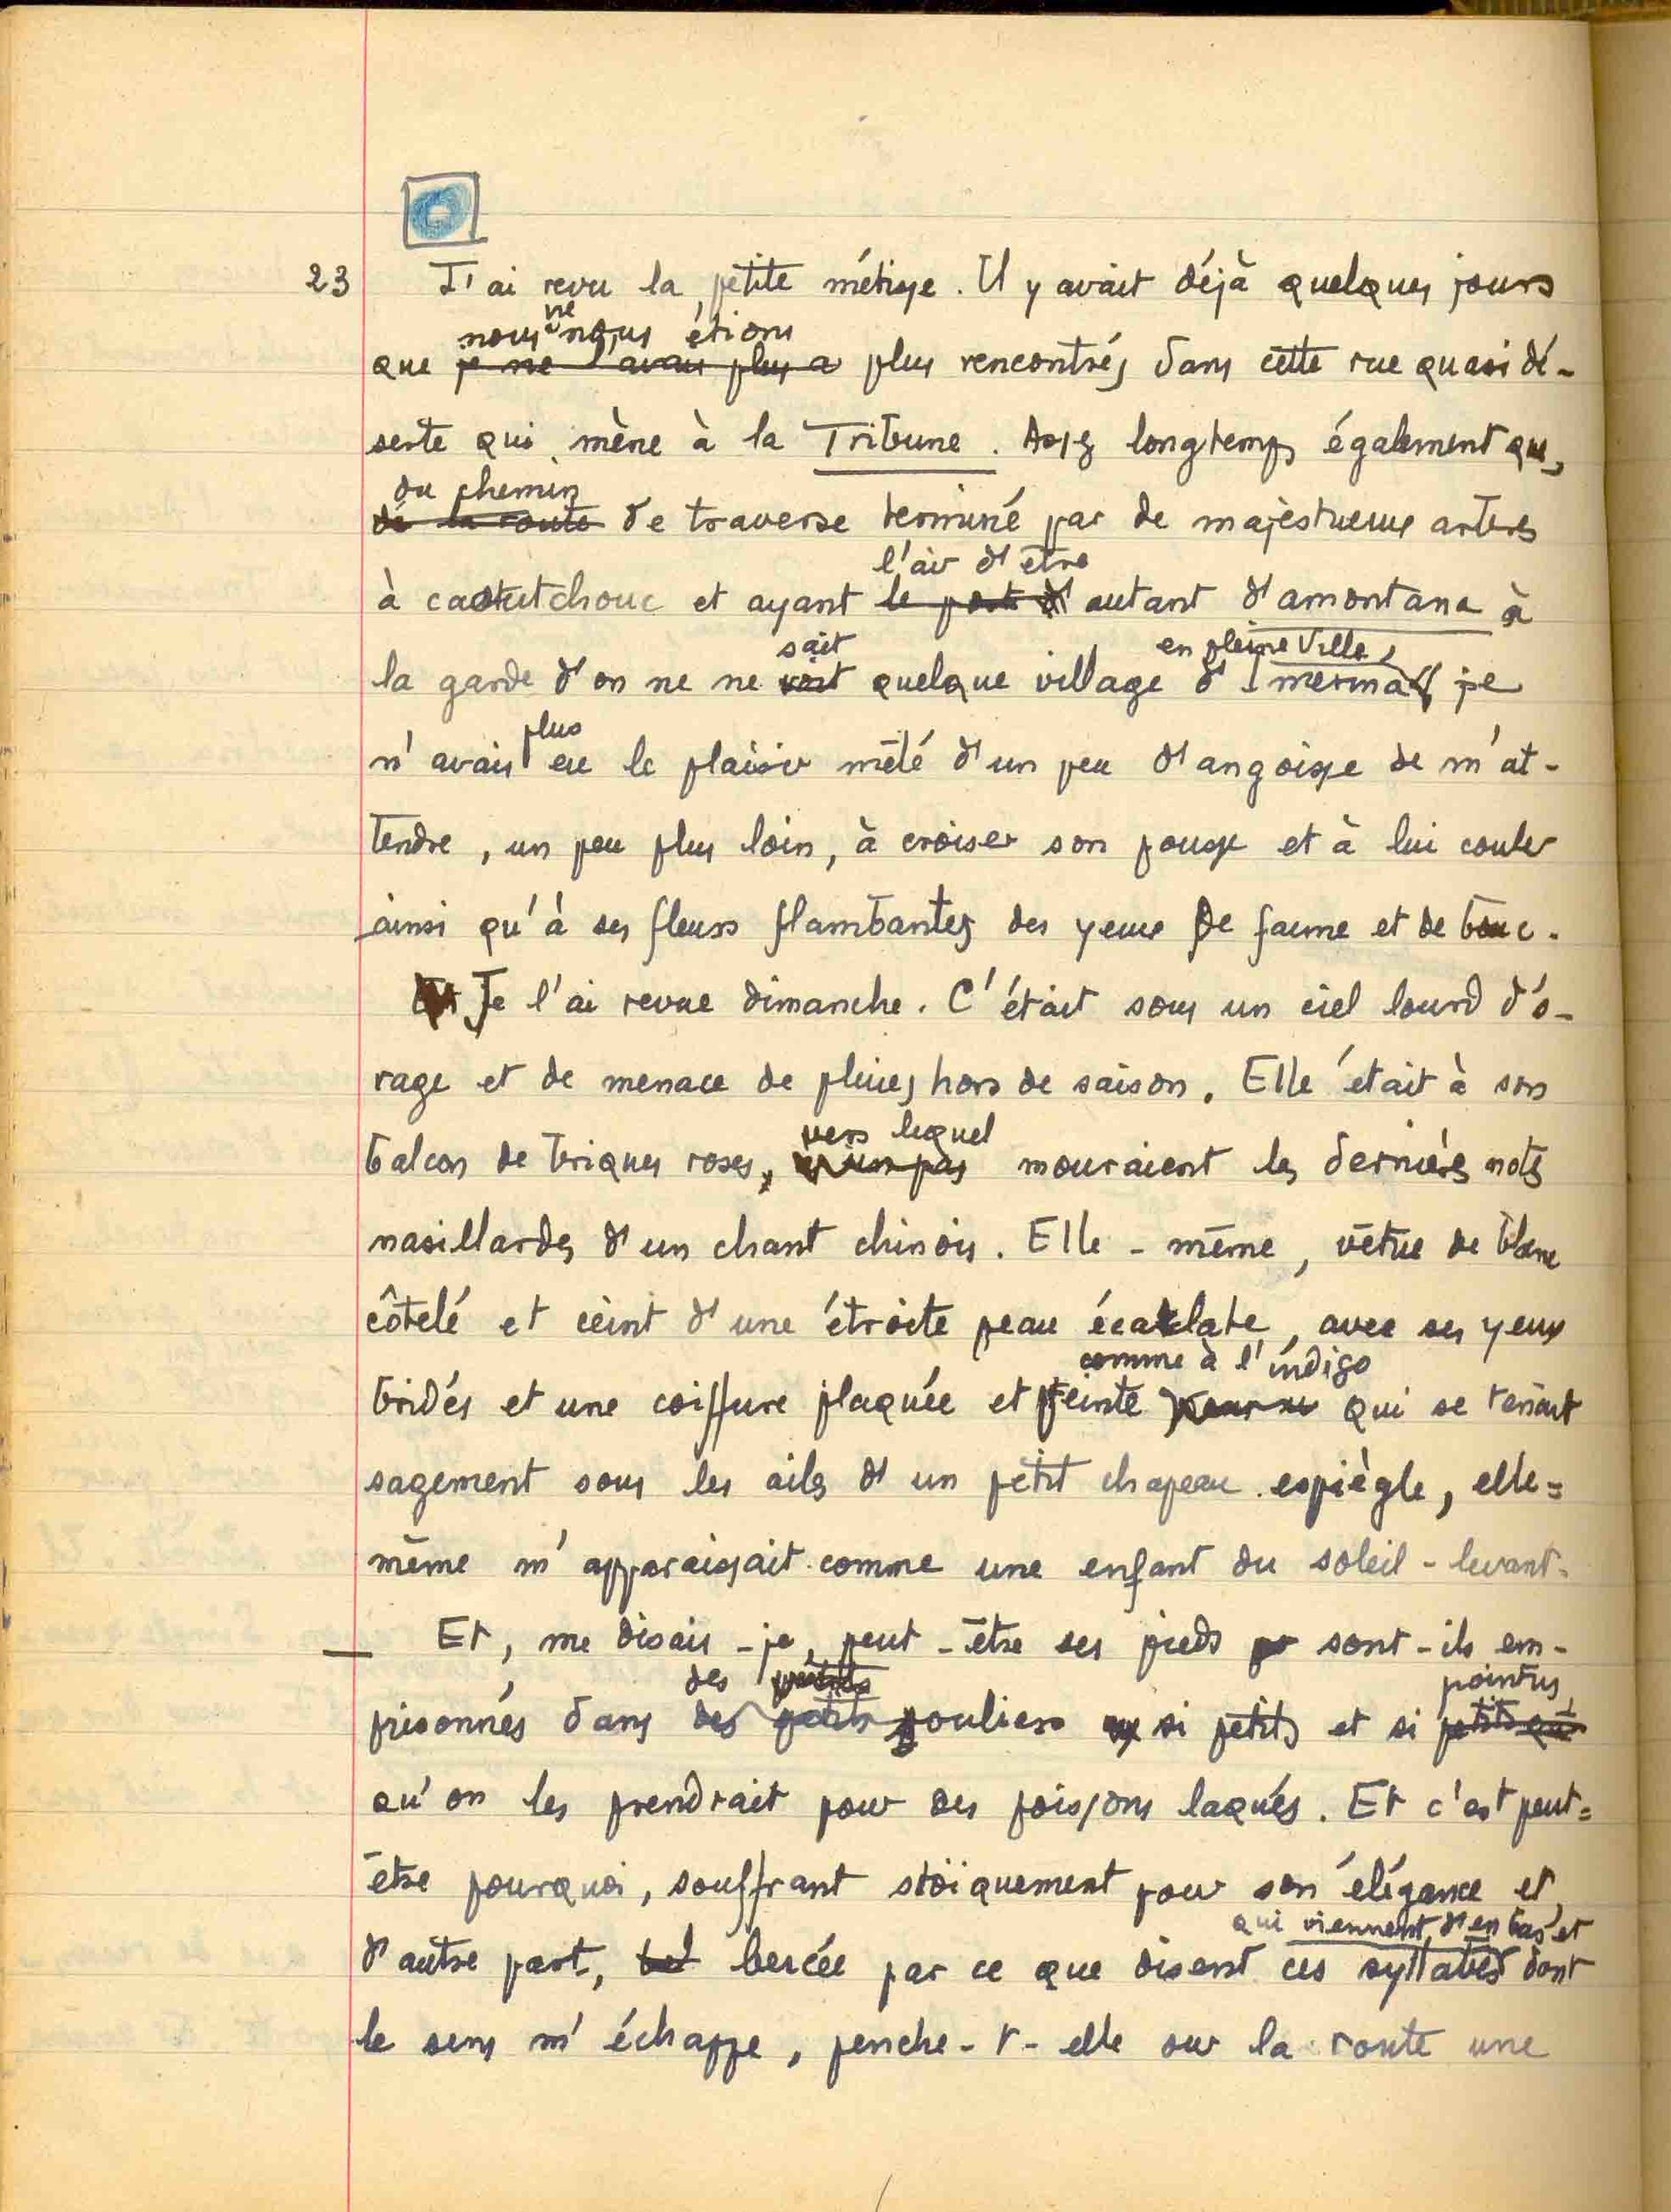 23 J'ai revu la petite métisse. Il y avait déjà quelques jours
nous ne nous étions
que je ne l'avais plus a plus rencontrés dans cette rue quasi dé-
serte qui mène à la Tribune. Assez longtemps également que,
du chemin
de la route de traverse terminé par de majestueux arbres
l'air d'être
à caoutchouc et ayant le port d' autant d'amontana à
sait en pleine Ville,
la garde d'on ne ne voit quelque village d'Imerina je
plus
n'avais eu le plaisir mêlé d'un peu d'angoisse de m'at-
tendre, un peu plus loin, à croiser son pousse et à lui couler
ainsi qu'à ses fleurs flambantes des yeux de faune et de bouc.
Et Je l'ai revue dimanche. C'était sous un ciel lourd d'o-
rage et de menace de pluies hors de saison. Elle était à son
vers lequel
balcon de briques roses, mouraient les dernières notes
nasillardes d'un chant chinois. Elle-même, vêtue de blanc
côtelé et ceint d'une étroite peau écarlate, avec ses yeux
comme à l'indigo
bridés et une coiffure plaquée et teinte qui se tenait
sagement sous les ailes d'un petit chapeau espiègle, elle=
même m'apparaissait comme une enfant du soleil-levant.
— Et, me disais-je, peut-être ses pieds sont-ils em-
des petits pointus
prisonnés dans des petits souliers si petits et si petits qu'
qu'on les prendrait pour des poissons laqués. Et c'est peut=
être pourquoi, souffrant stoïquement pour son élégance et,
qui viennent d'en bas et
d'autre part, bercée par ce que disent ces syllabes dont
le sens m'échappe, penche-t-elle sur la route une